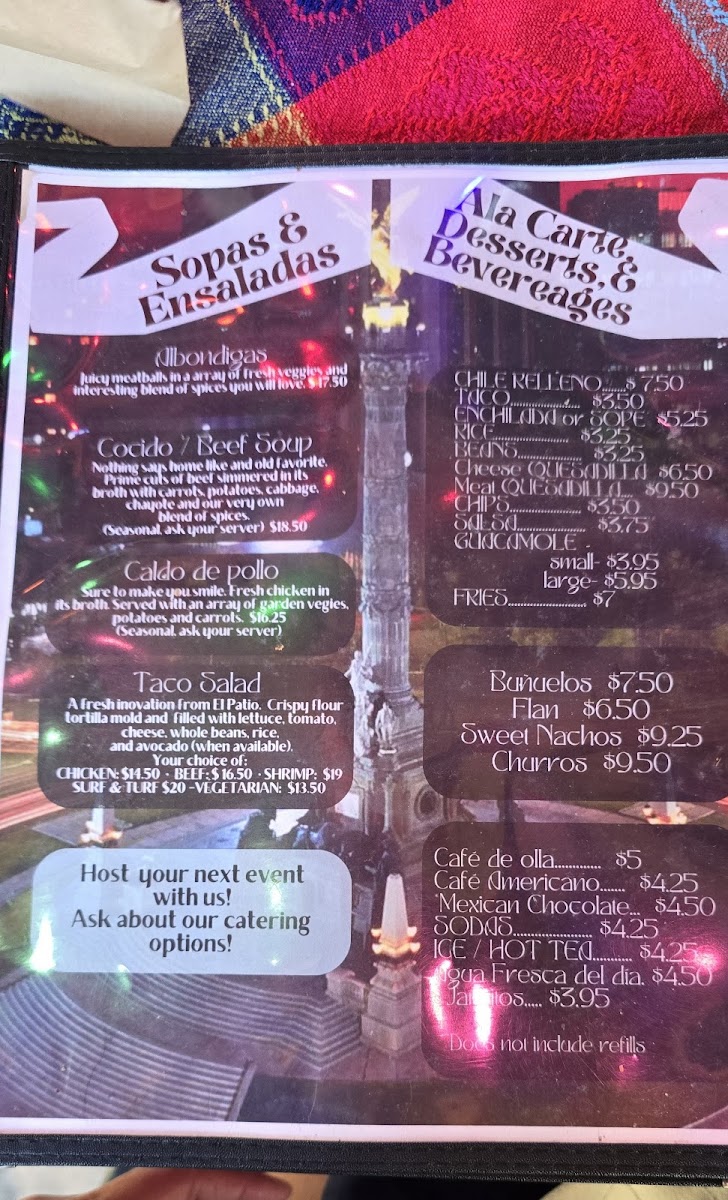 Sopas &
Ensaladas
Albondigas
Juicy meatballs in a array of fresh veggies and
interesting blend of spices you will love. $17.50
Cocido / Beef Soup
Nothing says home like and old favorite.
Prime cuts of beef simmered in its
broth with carrots, potatoes, cabbage,
chayote and our very own
blend of spices.
(Seasonal, ask your server) $18.50
Caldo de pollo
Sure to make you smile. Fresh chicken in
its broth. Served with an array of garden vegies,
potatoes and carrots. $16.25
(Seasonal, ask your server)
Taco Salad
A fresh inovation from El Patio. Crispy flour
tortilla mold and filled with lettuce, tomato,
cheese, whole beans, rice,
and avocado (when available).
Your choice of:
CHICKEN: $14.50 · BEEF: $16.50 · SHRIMP: $19
SURF & TURF $20 -VEGETARIAN: $13.50
Host your next event
with us!
Ask about our catering
options!
Ala Carte,
Desserts, &
Bevereages
CHILE RELLENO......$ 7.50
TACO.................... $3.50
ENCHILADA or SOPE $5.25
RICE..................... $3.25
BEANS.................. $3.25
Cheese QUESADILLA $6.50
Meat QUESADILLA... $9.50
CHIPS.................... $3.50
SALSA................... $3.75
GUACAMOLE -
small- $3.95
large- $5.95
FRIES...................... $7
Buñuelos $7.50
Flan $6.50
Sweet Nachos $9.25
Churros $9.50
Café de olla............. $5
Café Americano....... $4.25
*Mexican Chocolate... $4.50
SODAS...................... $4.25
ICE / HOT TEA........... $4.25
Agua Fresca del dia. $4.50
*Jarritos..... $3.95
*Does not include refills